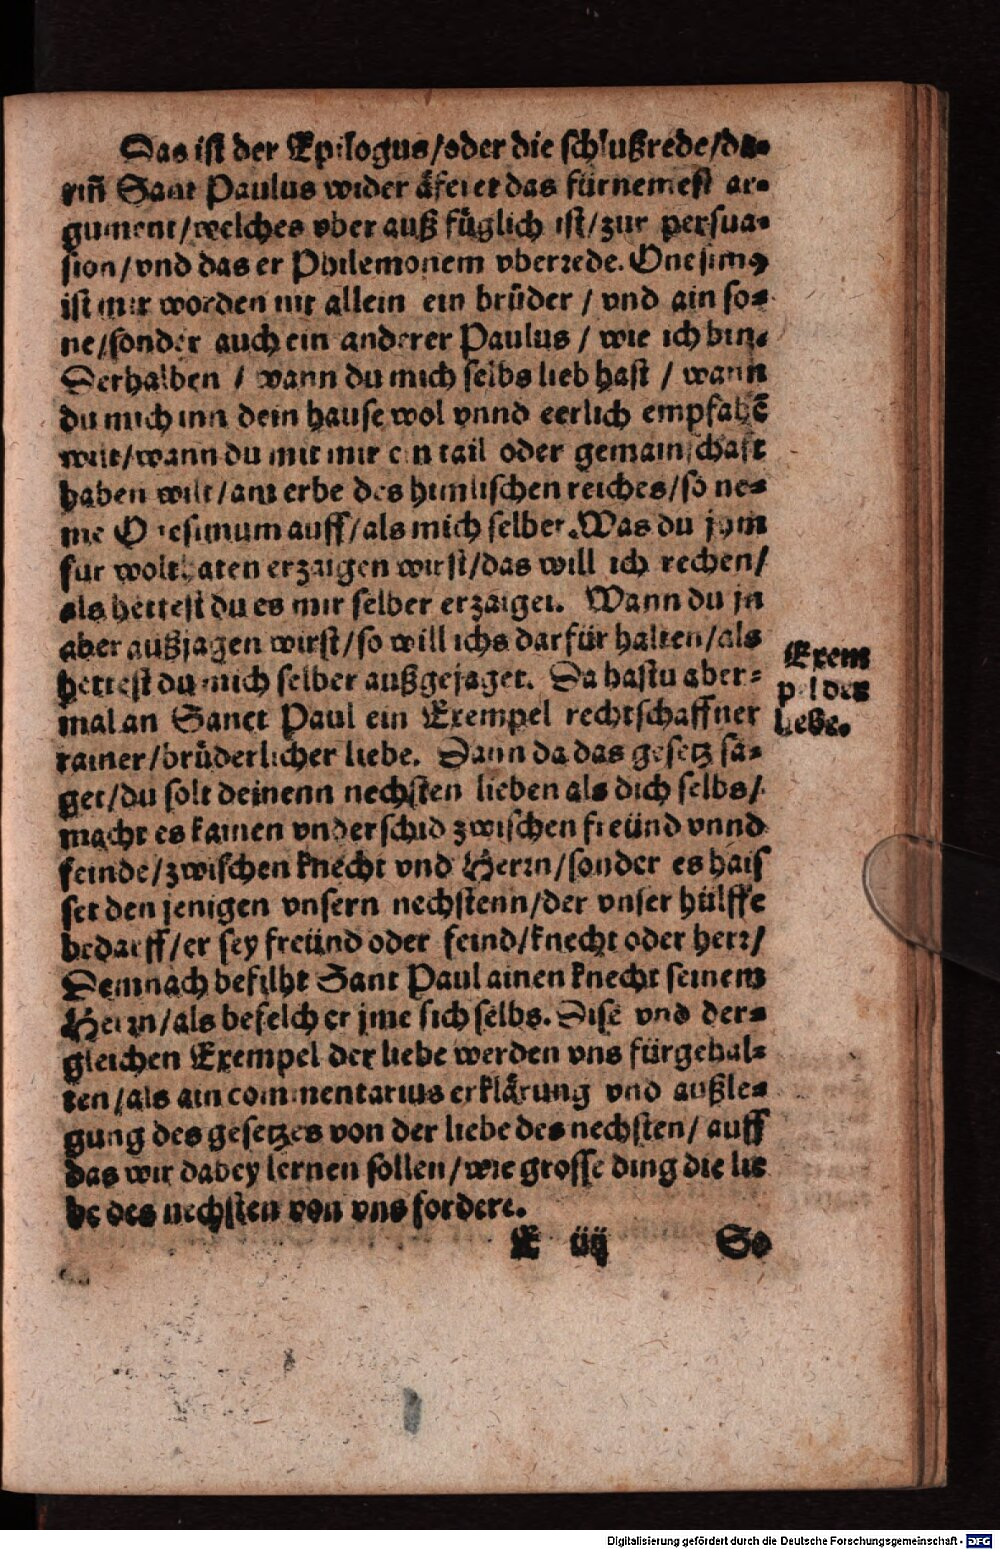 Das ist der Epilogus/oder die schlußrede/da-
riñ Sant Paulus wider äferet das fürnemest ar-
gument/welches vber auß füglich ist/zur persua-
sion/vnd das er Philemonem vberrede. Onesimꝰ
ist mir worden nit allein ein brüder / vnd ain so-
ne/sonder auch ein anderer Paulus / wie ich bin.
Derhalben / wann du mich selbs lieb hast / wann
du mich inn dein hause wol vnnd eerlich empfahẽ
wilt/wann du mit mir ein tail oder gemainschaft
haben wilt/am erbe des himlischen reiches/so ne-
me Onesimum auff/als mich selber. Was du jym
für wolthaten erzaigen wirst/das will ich rechen/
als hettest du es mir selber erzaiget. Wann du jn
aber außjagen wirst/so will ichs darfür halten/als
hettest du mich selber außgejaget. Da hastu aber-
mal an Sanct Paul ein Exempel rechtschaffner
rainer/brüderlicher liebe. Dann da das gesetz sa-
get/du solt deinenn nechsten lieben als dich selbs/
macht es kainen vnderschid zwischen freünd vnnd
feinde/zwischen knecht vnd Herrn/sonder es hais
set den jenigen vnsern nechstenn/der vnser hülffe
bedarff/er sey freünd oder feind/knecht oder herr/
Demnach befilht Sant Paul ainen knecht seinem
Herrn/als befelch er jme sich selbs. Dise vnd der-
gleichen Exempel der liebe werden vns fürgehal-
ten/als ain commentarius erklärung vnd außle-
gung des gesetzes von der liebe des nechsten/ auff
das wir dabey lernen sollen/wie grosse ding die lie
be des nechsten von vns fordere.
E iij So
Exem
pel der
liebe.
Digitalisierung gefördert durch die Deutsche Forschungsgemeinschaft - DFG